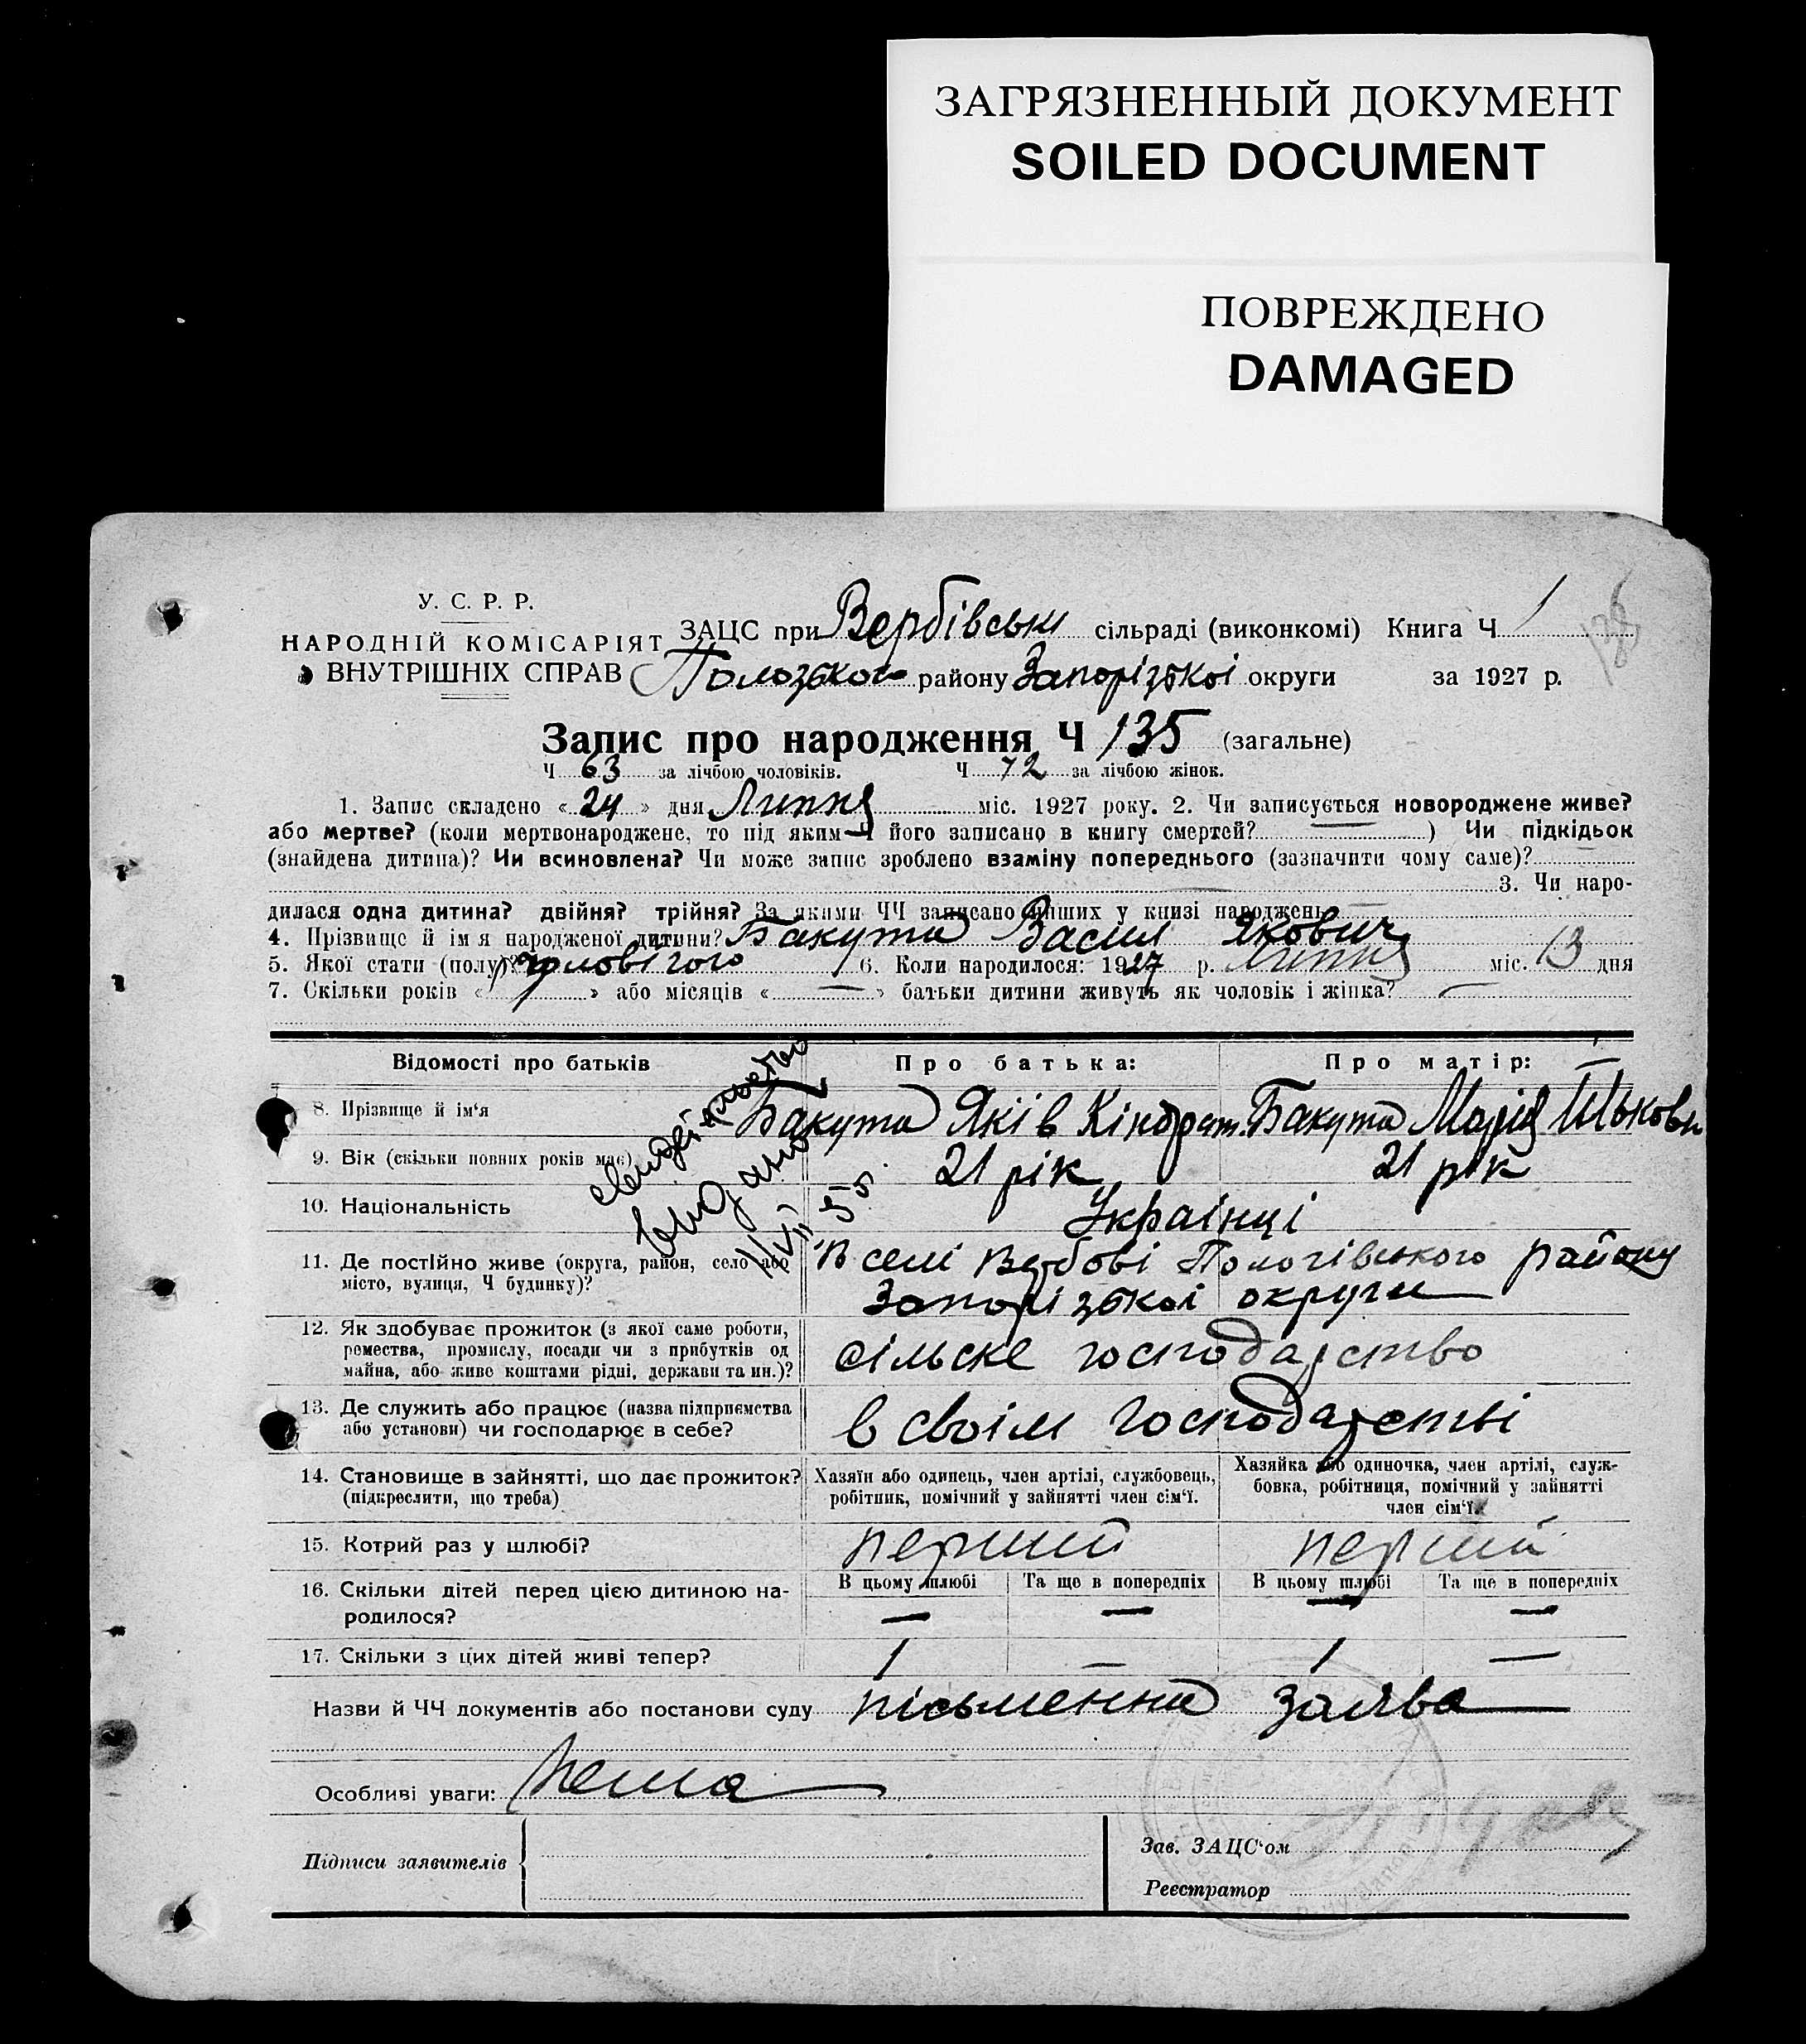 ЗАГРЯЗНЕННЫЙ ДОКУМЕНТ
SOILED DOCUMENT
ПОВРЕЖДЕНО
DAMAGED
У. С. Р. Р.
НАРОДНІЙ КОМІСАРІЯТ
ВНУТРІШНІХ СПРАВ
ЗАЦС при Вербівські сільраді (виконкомі) Книга Ч 1
району Запорізької округи за 1927 р.
Запис про народження Ч 135 (загальне)
Ч 63 за лічбою чоловіків. Ч 72 за лічбою жінок.
1. Запис складено « 24 » дня Липня міс. 1927 року. 2. Чи записується новороджене живе?
або мертве? (коли мертвонароджене, то під яким Ч його записано в книгу смертей? — ) Чи підкідьок
(знайдена дитина)? Чи всиновлена? Чи може запис зроблено взаміну попереднього (зазначити чому саме)?
3. Чи наро-
дилася одна дитина? двійня? трійня? За якими ЧЧ записано инших у книзі народжень
4. Прізвище й ім я народженої дитини? Бакута Васил Якович
5. Якої стати (полу)? чоловічого 6. Коли народилося: 1927 р. Липня міс. 13 дня
7. Скільки років « » або місяців « — » батьки дитини живуть як чоловік і жінка? —
Відомості про батьків Про батька: Про матір:
8. Прізвище й ім‘я Бакута Яків Кіндрат. Бакута Марія
9. Вік (скільки повних років має) 21 рік 21 рік
видано
10. Національність Українці
11. Де постійно живе (округа, район, село або
місто, вулиця, Ч будинку)?
В селі Вербові Пологівського району
Запорізької округи
12. Як здобуває прожиток (з якої саме роботи,
ремества, промислу, посади чи з прибутків од
майна, або живе коштами рідні, держави та ин.)?
сільске господарство
13. Де служить або працює (назва підприємства
або установи) чи господарює в себе?
в своїм господарстві
14. Становище в зайнятті, що дає прожиток?
(підкреслити, що треба)
Хазяїн або одинець, член артілі, службовець,
робітник, помічний у зайнятті член сім‘ї.
Хазяйка або одиночка, член артілі, служ-
бовка, робітниця, помічний у зайнятті
член сім‘ї.
15. Котрий раз у шлюбі? перший перший
16. Скільки дітей перед цією дитиною на-
родилося?
В цьому шлюбі Та ще в попередніх В цьому шлюбі Та ще в попередніх
— — — —
17. Скільки з цих дітей живі тепер? 1 — 1 —
Назви й ЧЧ документів або постанови суду письменна заява
Особливі уваги: Нема
Підписи заявителів
Зав. ЗАЦС‘ом
Реєстратор